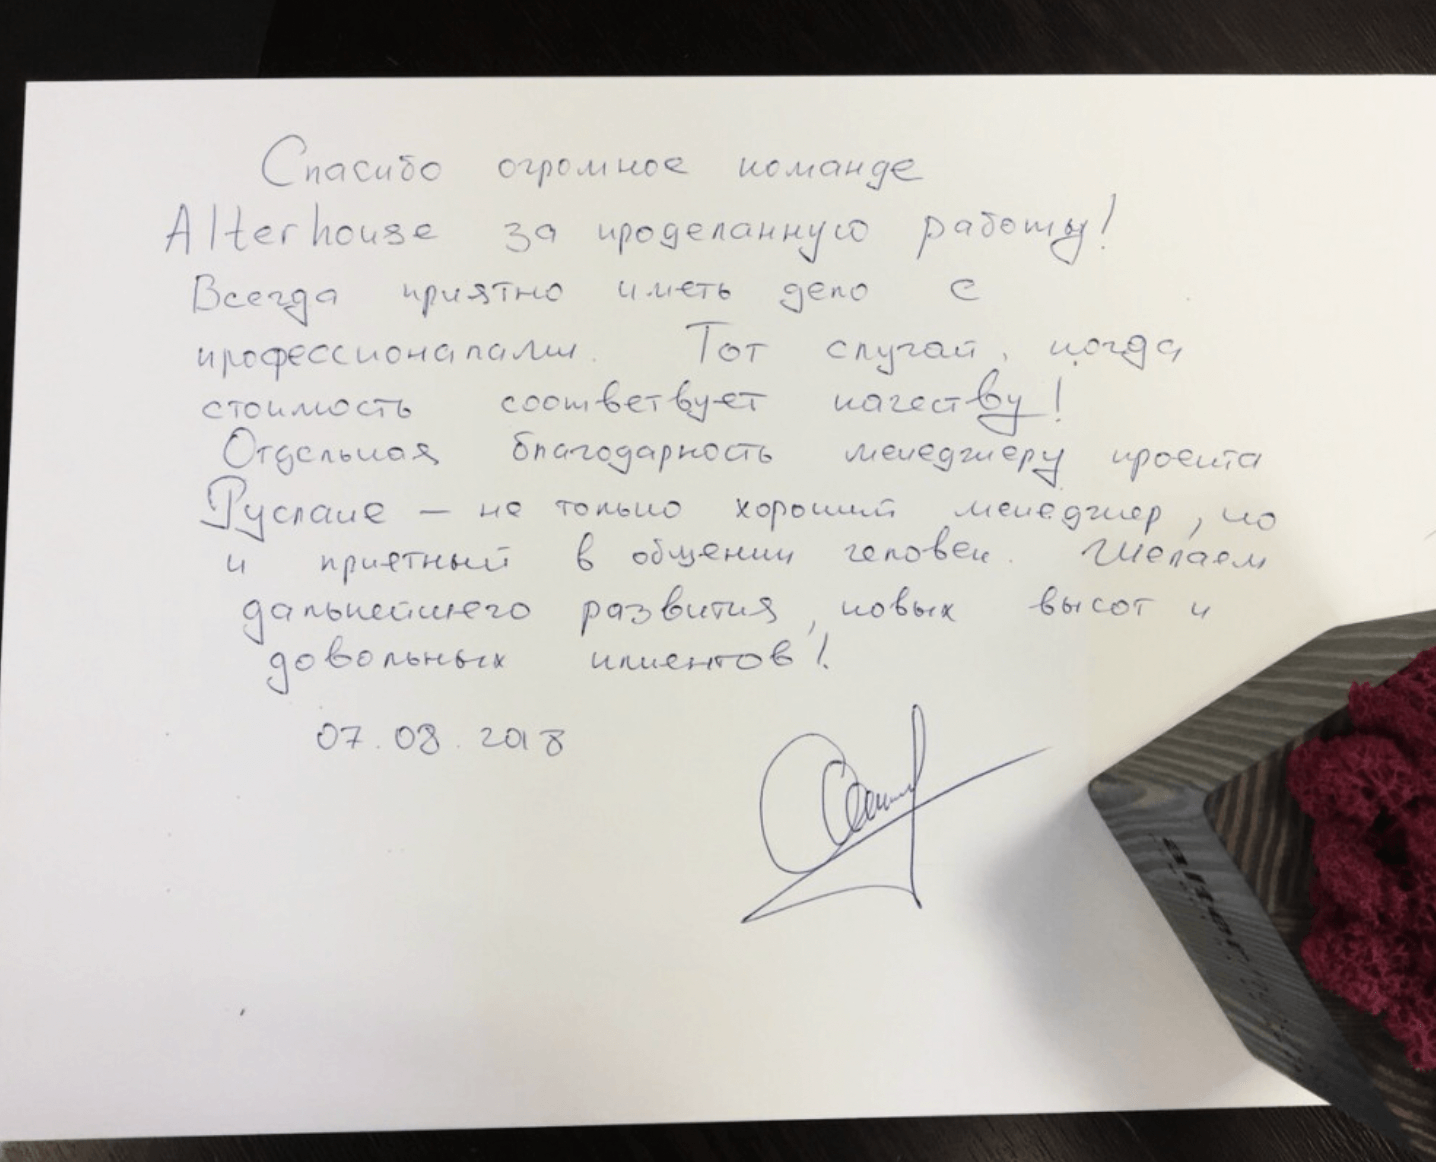 Спасибо огромное команде
Alterhouse за проделанную работу!
Всегда приятно иметь дело с
профессионалами. Тот случай, когда
стоимость соответвует качеству!
Отдельная благодарность менеджеру проекта
Руслане – не только хороший менеджер, но
и приетный в общении человек. Желаем
дальнейшего развития, новых высот и
довольных клиентов!
07.08.2018
alter